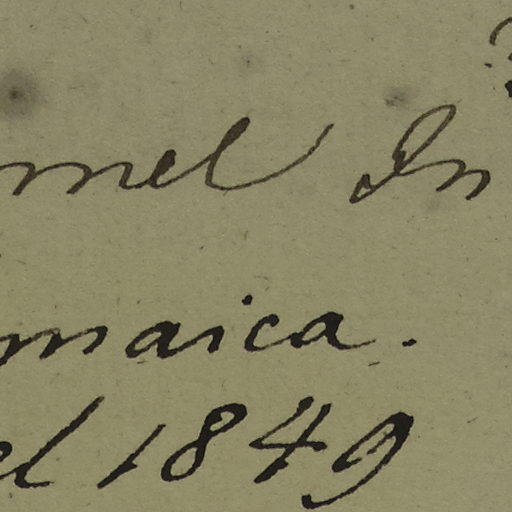 mel In
maica.
el 1849